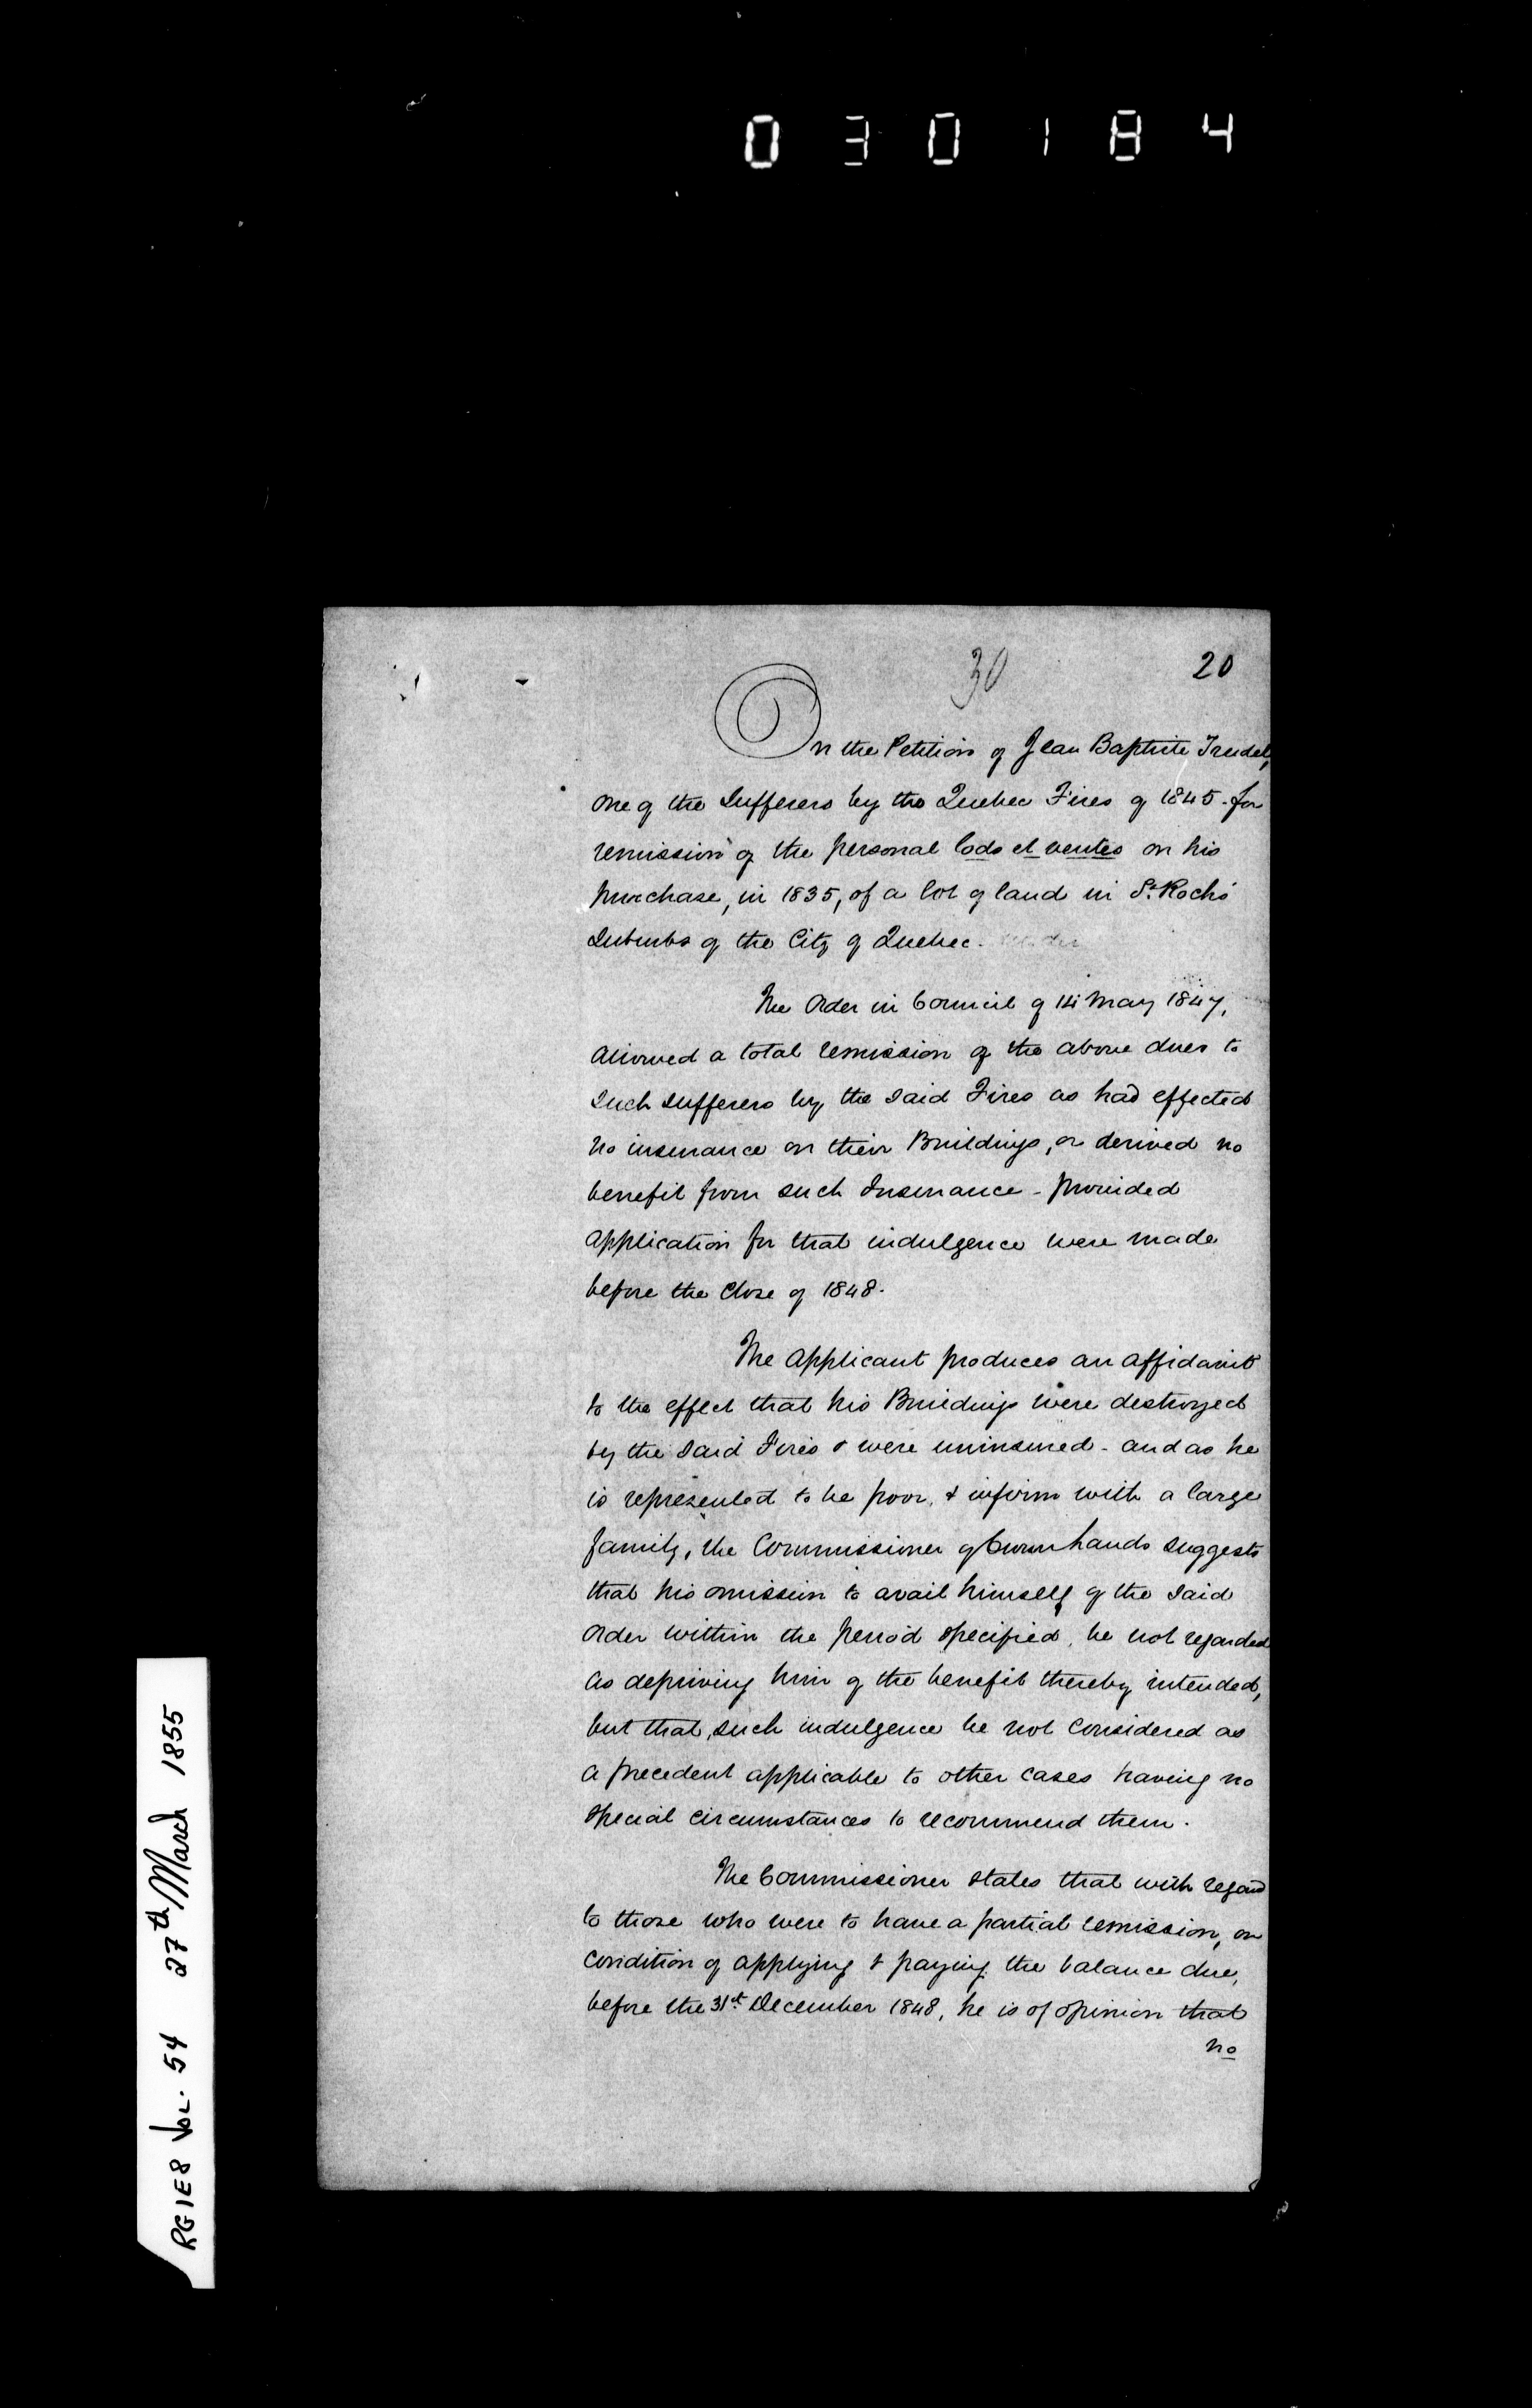 0 3 0 1 8 4
30
20
On the Petition of Jean Baptiste Trudel,
one of the Sufferers by the Quebec Fires of 1845. for
remission of the personal lods et ventes on his
purchase, in 1835, of a lot of land in St. Roch's
Suburbs of the City of Quebec.
The Order in Council of 14 May 1847,
allowed a total remission of the above dues to
such sufferers by the said Fires as had effected
no insurance on their Buildings, or derived no
benefit from such Insurance - provided
application for that indulgence were made
before the close of 1848.
The Applicant produces an affidavit
to the effect that his Buildings were destroyed
by the said Fires & were uninsured - and as he
is represented to be poor, & infirm with a large
family, the Commissioner of Crown Lands suggests
that his omission to avail himself of the said
Order within the period specified, be not regarded
as depriving him of the benefit thereby intended,
but that, such indulgence be not considered as
a precedent applicable to other cases having no
special circumstances to recommend them.
The Commissioner states that with regard
to those who were to have a partial remission, on
condition of applying & paying the balance due,
before the 31st December 1848, he is of opinion that
no
RG1E8 Vol. 54 27th March 1855